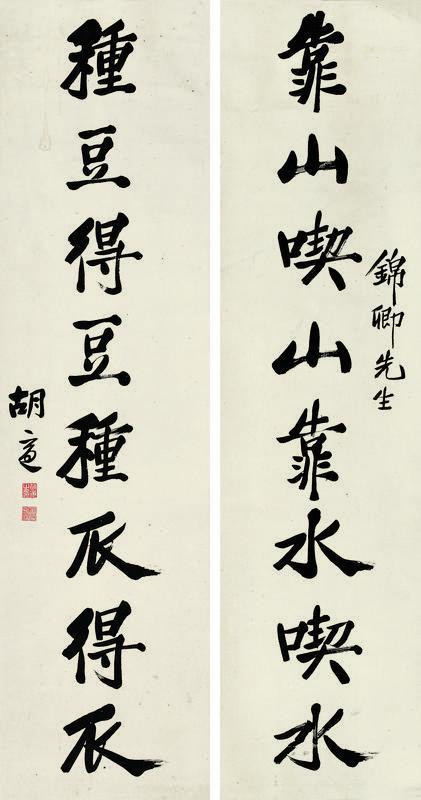 錦卿先生
靠山喫山靠水喫水
種豆得豆種瓜得瓜
胡適